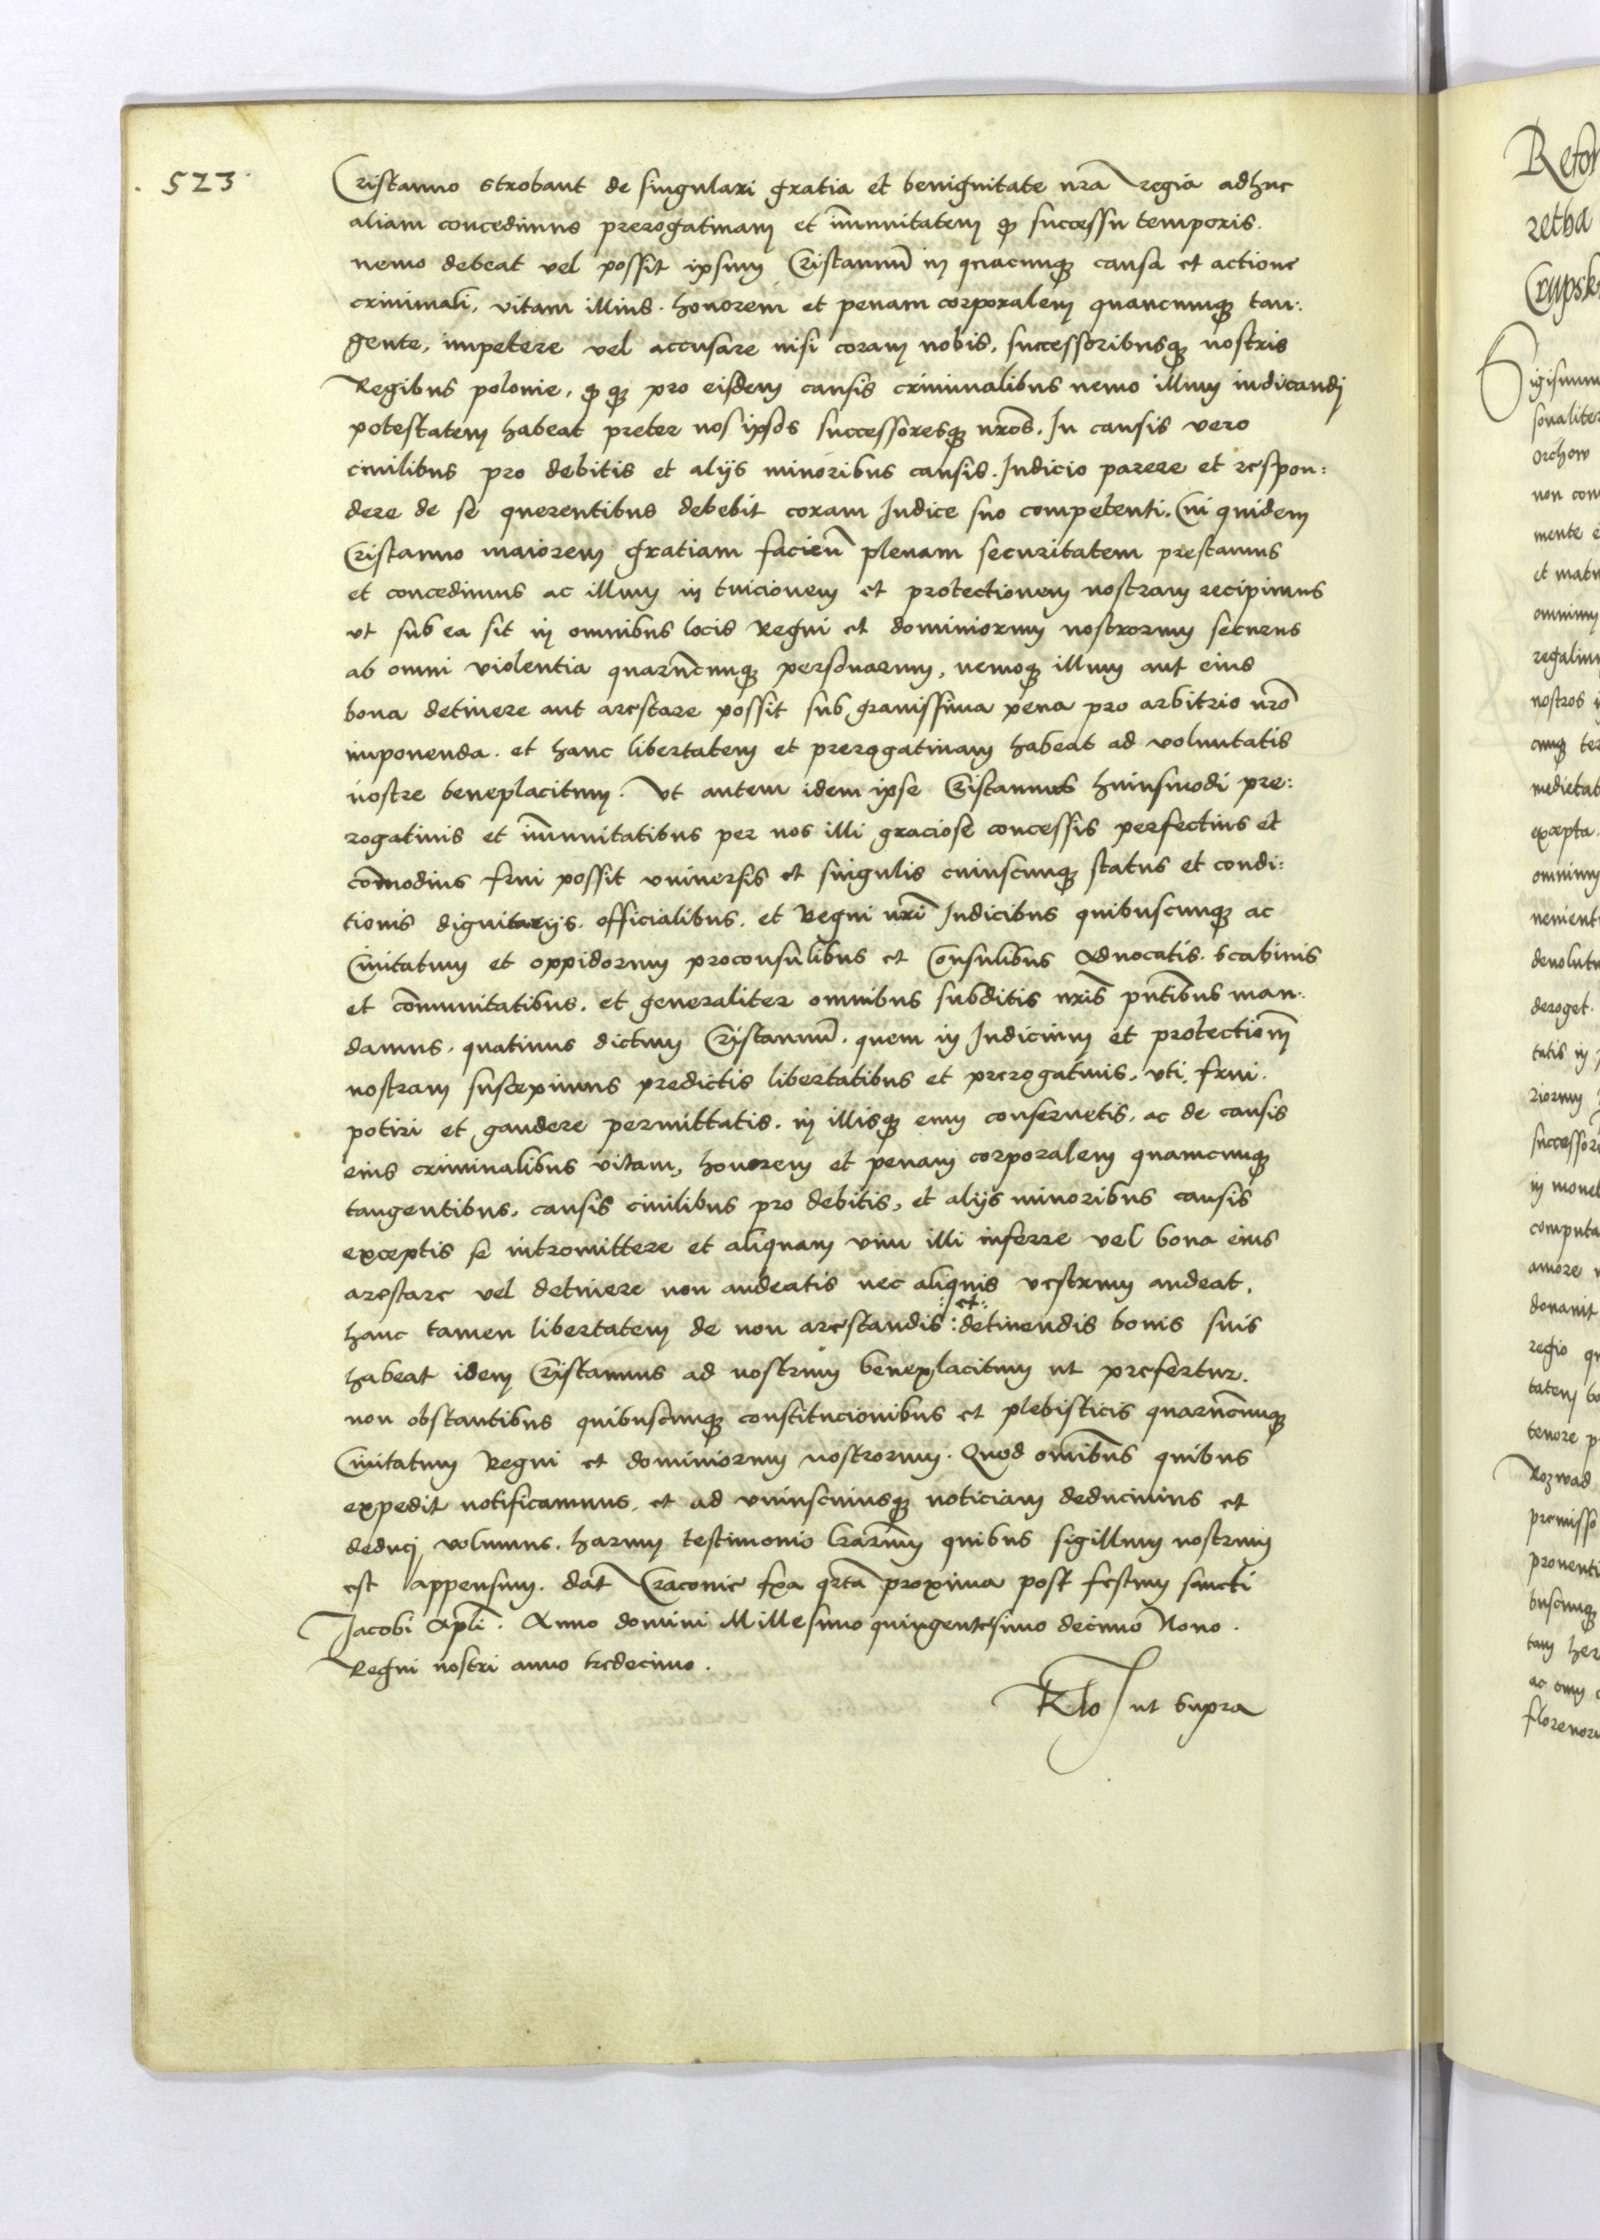 . 523 .
Cristanno Strobant de singulari gratia et benignitate nrã regia adhuc
aliam concedimus prerogatiuam et im̃unitatem ꝙ successu temporis.
nemo debeat vel possit ipsum Cristannũ in quacunqȝ causa et actione
criminali, vitam illius. honorem et penam corporalem quancunqȝ tan:
gente, impetere vel accusare nisi coram nobis, successoribusqȝ nostris
Regibus polonie, ꝙ qȝ pro eisdem causis criminalibus nemo illum iudicandi
potestatem habeat preter nos ipsos successoresqȝ nrõs. In causis vero
ciuilibus pro debitis et alijs minoribus causis. Iudicio parere et respon:
dere de se querentibus debebit coram Iudice suo competenti. Cui quidem
Cristanno maiorem gratiam facieñ plenam securitatem prestamus
et concedimus ac illum in tuicionem et protectionem nostram recipimus
vt sub ea sit in omnibus locis Regni et dominiorum nostrorum securus
ab omni violentia quarũcunqȝ personarum, nemoqȝ illum aut eius
bona detinere aut arestare possit sub grauissima pena pro arbitrio nrõ
imponenda. et hanc libertatem et prerogatiuam habeat ad voluntatis
nostre beneplacitum. Vt autem idem ipse Cristannus huiusmodi pre:
rogatiuis et im̃unitatibus per nos illi graciose concessis perfectius et
com̃odius frui possit vniuersis et singulis cuiuscunqȝ status et condi:
tionis dignitarijs. officialibus. et Regni nrĩ Iudicibus quibuscunqȝ ac
Ciuitatum et oppidorum proconsulibus et Consulibus Aduocatis. Scabinis
et com̃unitatibus. et generaliter omnibus subditis nrĩs pñtibus man:
damus. quatinus dictum Cristannũ. quem in Iudicium et protectionẽ
nostram suscepimus predictis libertatibus et prerogatiuis, vti, frui.
potiri et gaudere permittatis. in illisqȝ eum conseruetis, ac de causis
eius criminalibus vitam, honorem et penam corporalem quamcunqȝ
tangentibus. causis ciuilibus pro debitis, et alijs minoribus causis
exceptis se intromittere et aliquam vim illi inferre vel bona eius
arestare vel detinere non audeatis nec aliquis vestrum audeat.
hanc tamen libertatem de non arestandis :et: detinendis bonis suis
habeat idem Cristannus ad nostrum beneplacitum ut prefertur.
non obstantibus quibuscunqȝ constitucionibus et plebisticis quarũcunqȝ
Ciuitatum Regni et dominiorum nostrorum. Quod omĩbus quibus
expedit notificamus, et ad vniuscuiusqȝ noticiam deducimus et
deduci volumus. harum testimonio lrãrum quibus sigillum nostrum
est appensum. dat̃ Cracouie fẽa qrtã proxima post festum sancti
Jacobi Apl̃i. Anno domini Millesimo quingentesimo decimo Nono.
Regni nostri anno tredecimo.
Rlo ut Supra